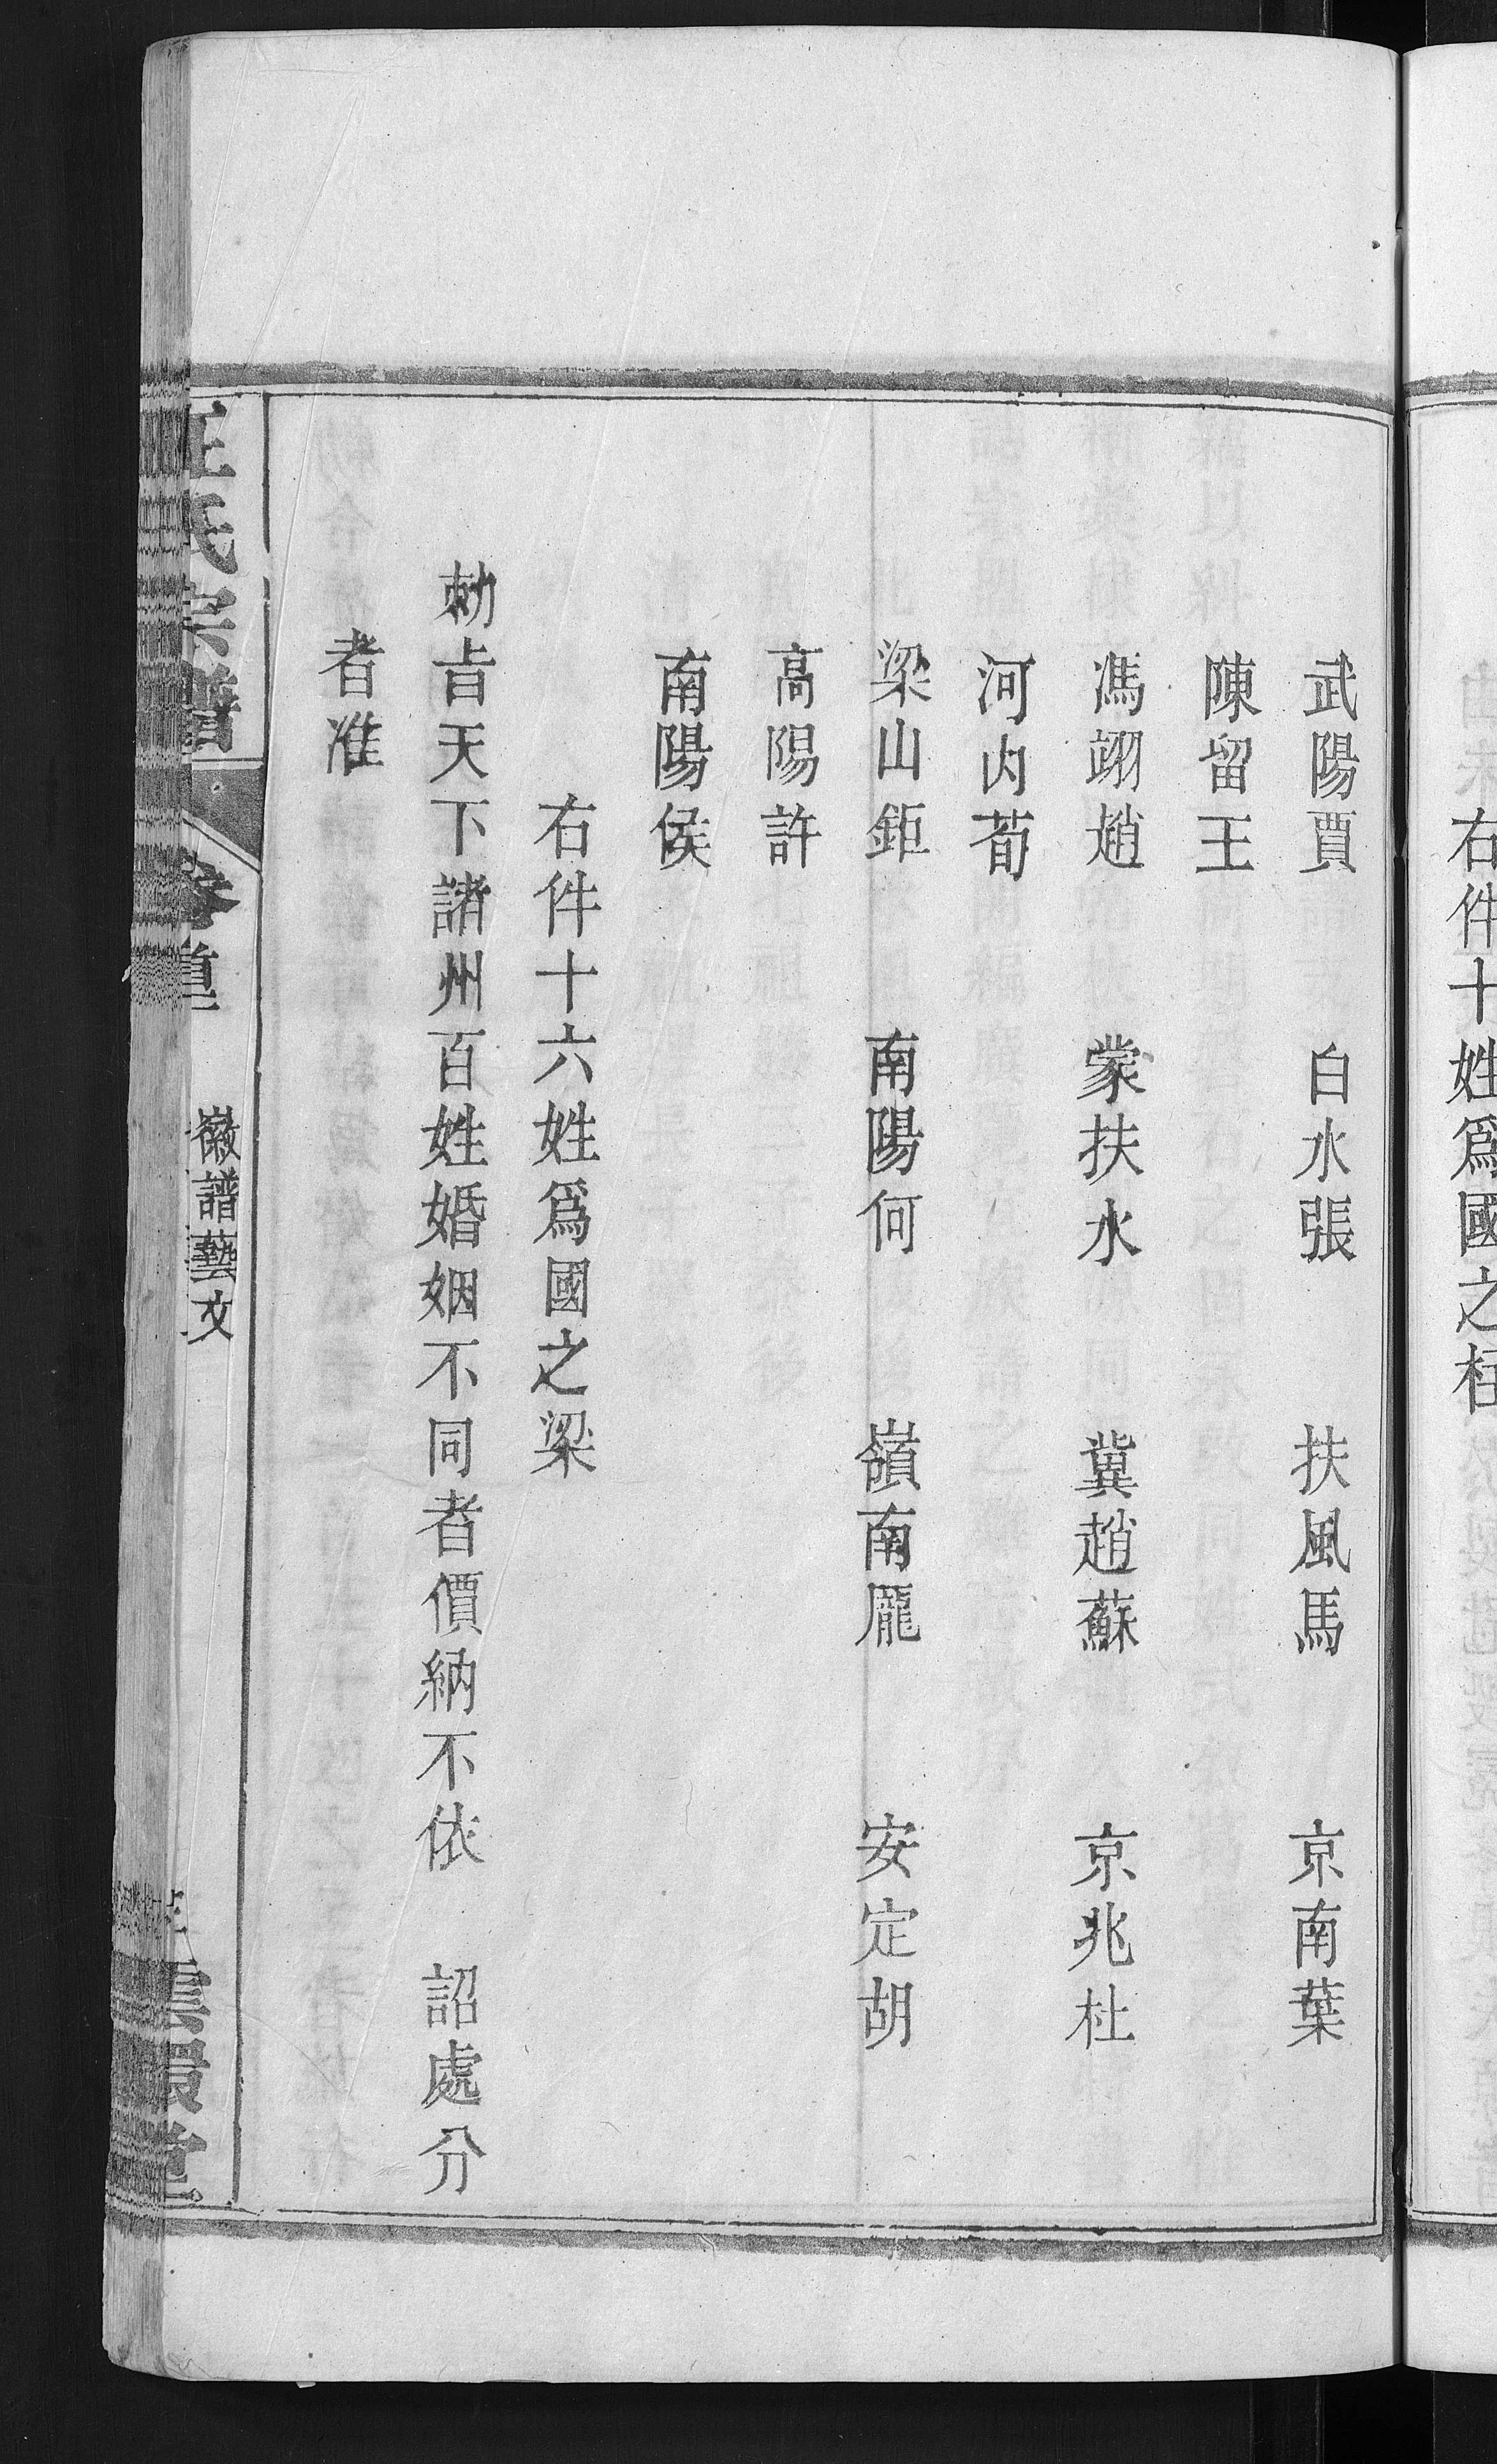 右件十姓爲國之柱
武陽賈　白水張　扶風馬　京南葉
陳留王
馮翊趙　蒙扶水　冀趙蘇　京兆杜
河內荀
梁山鉅　南陽何　嶺南龎　安定胡
高陽許
南陽侯
右件十六姓爲國之梁
勅旨天下諸州百姓婚姻不同者價納不依　詔處分
者准
氏宗譜
徽譜藝文
堂